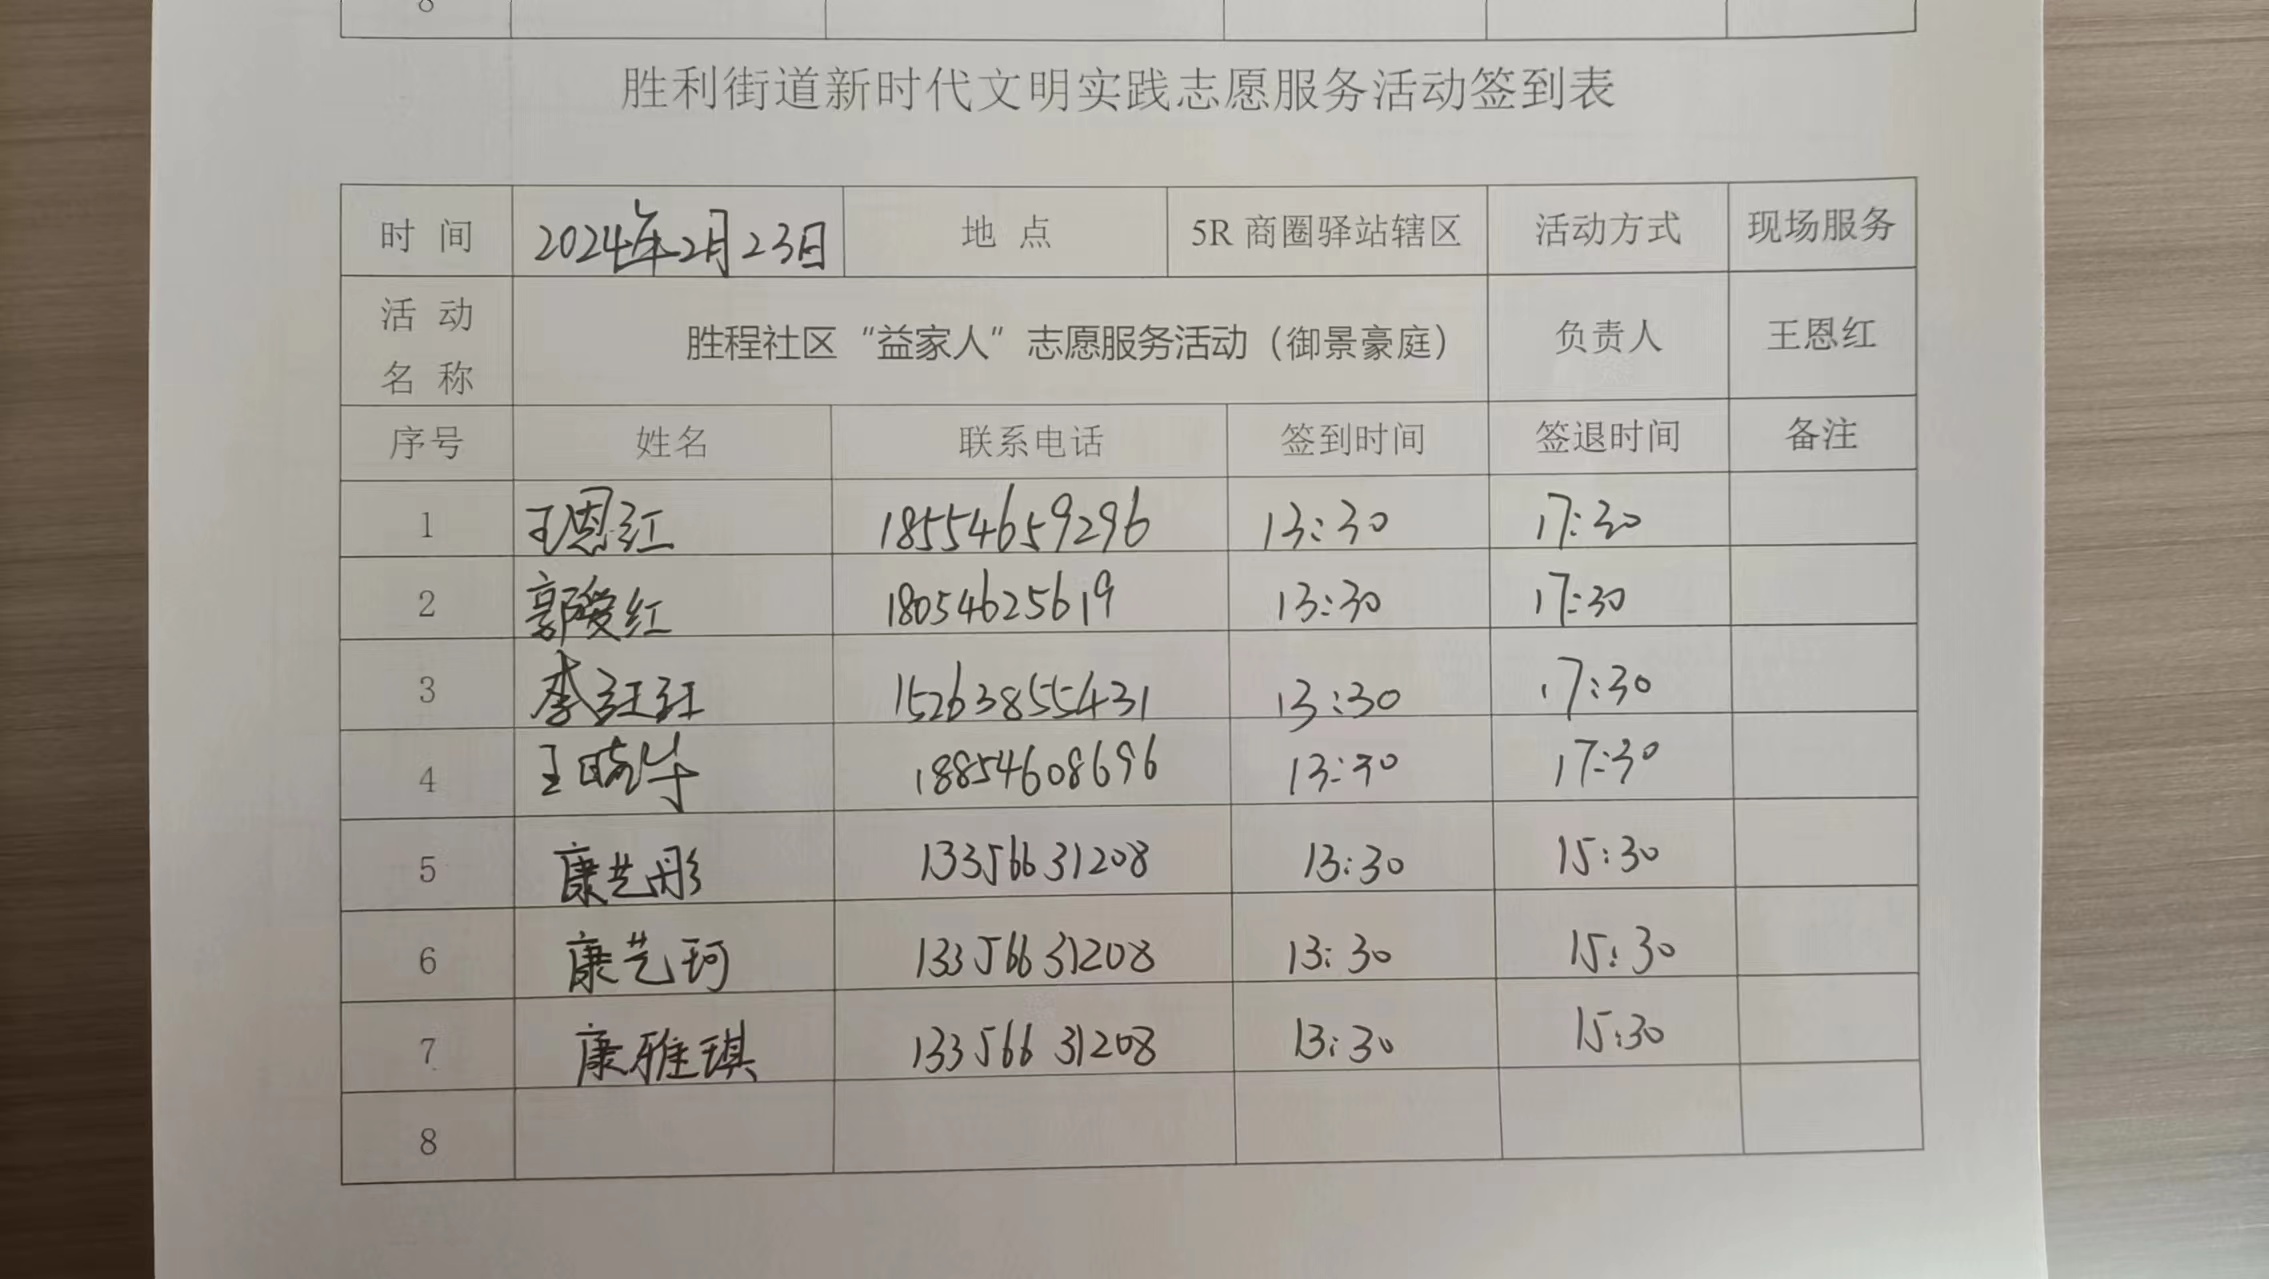 8
胜利街道新时代文明实践志愿服务活动签到表
时 间 2024年2月23日 地 点 5R 商圈驿站辖区 活动方式 现场服务
活 动
名 称 胜程社区“益家人”志愿服务活动（御景豪庭） 负责人 王恩红
序号 姓名 联系电话 签到时间 签退时间 备注
1 王恩红 18554659296 13:30 17:30
2 郭爱红 18054625619 13:30 17:30
3 李红红 15263855431 13:30 17:30
4 王晓华 18854608696 13:30 17:30
5 康艺彤 13356631208 13:30 15:30
6 康艺珂 13356631208 13:30 15:30
7 康雅琪 13356631208 13:30 15:30
8